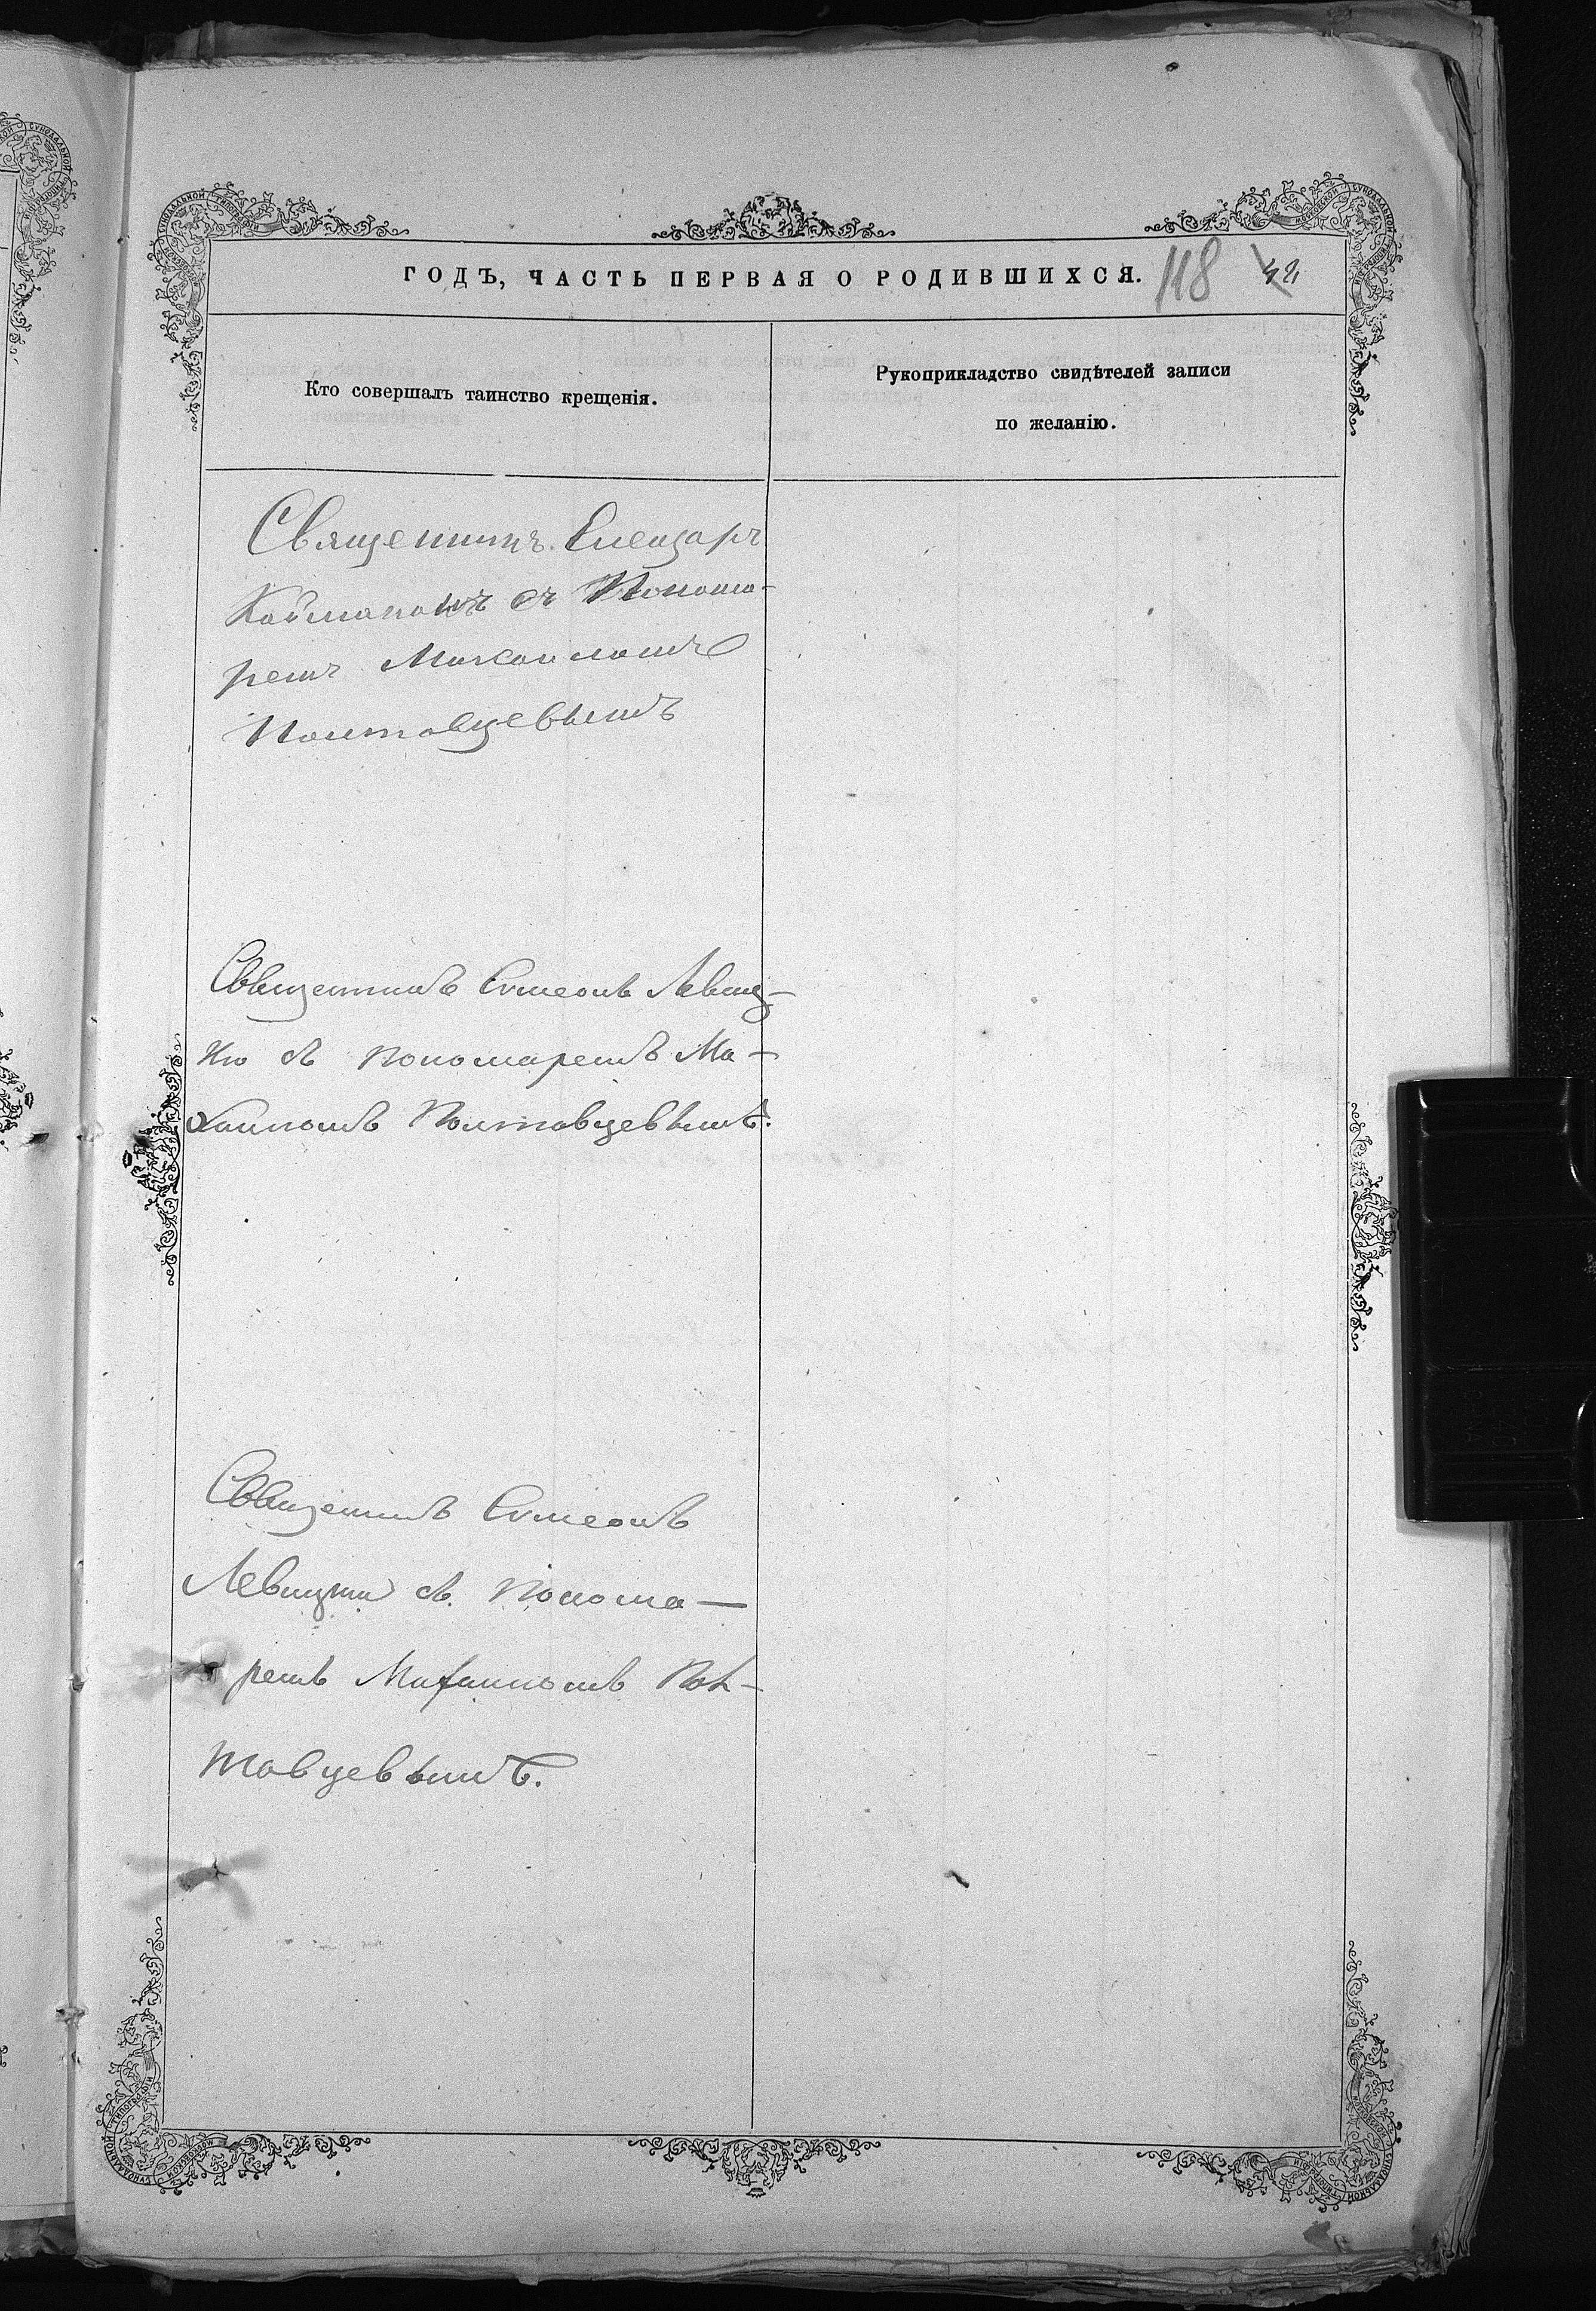 ГОДЪ, ЧАСТЬ ПЕРВАЯ О РОДИВШИХСЯ. 118 42
Кто совершалъ таинство крещенія.
Рукоприкладство свидѣтелей записи
по желанію.
Священникъ Елеазаръ
Каймаконъ съ Понома-
ремъ Михаиломъ
Полтавцевымъ
Священникъ Симеонъ Левиц-
кій съ Пономаремъ Ми-
хаиломъ Полтавцевымъ.
Священникъ Симеонъ
Левицкій съ Понома-
ремъ Михаиломъ Пол-
тавцевымъ.